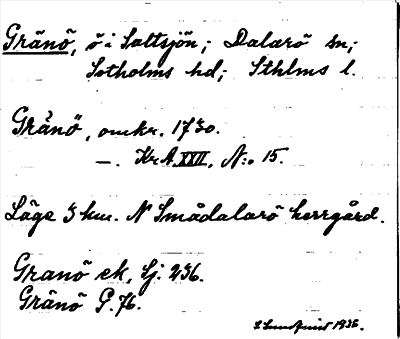 Gränö, ö i Saltsjön; Dalarö sn;
Sotholms hd; Sthlms l.
Gränö, omkr. 1730.
—. Kr.A. XXII, N:o 15.
Läge 3 km. N Smådalarö herrgård.
Granö ek, Sj. 236.
Gränö G. 76.
1936.